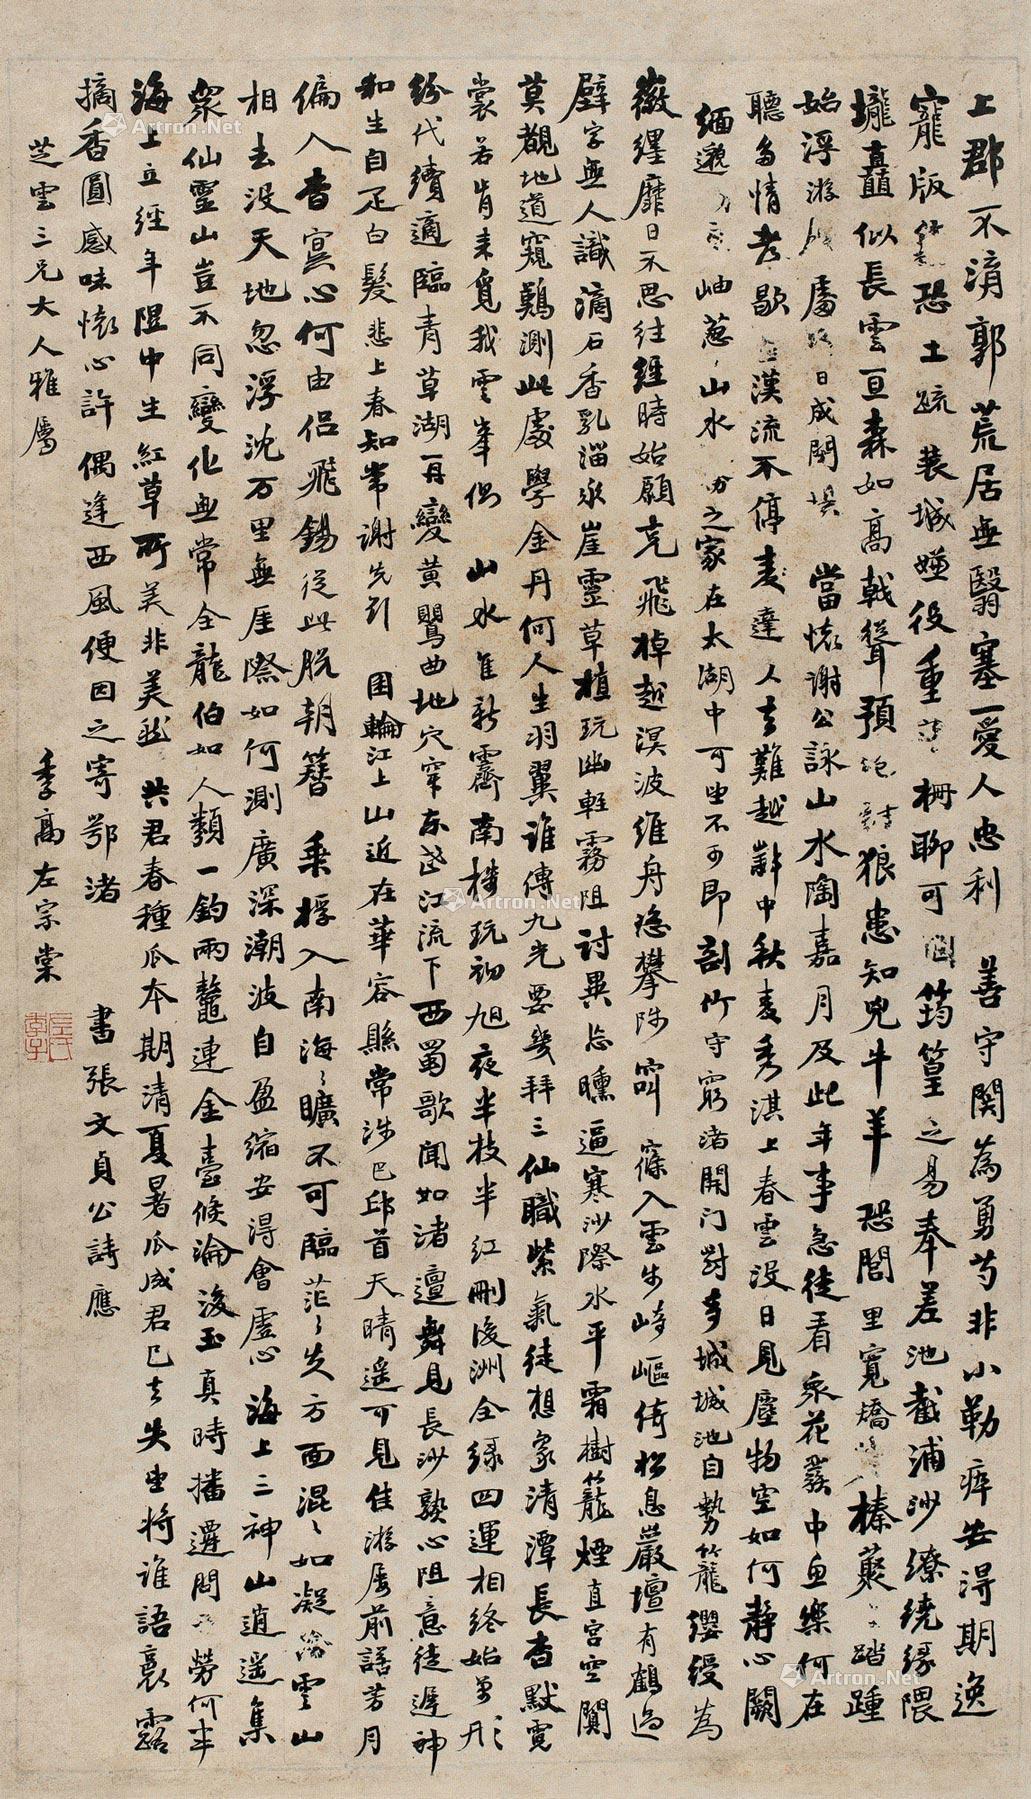 上郡不淯郭荒居無翳塞愛人忠利善守関為勇芍非小勒瘁安得期逸
寵版恐土疏裝城嫌役重柵聊可固筠篁之易奉差池截浦沙繚繞緣隈
壠矗似長雲亘森如高戟聳預狼患知兕牛羊恐閭里寬矯榛藂踏踵
始浮游處日成閉當懷謝公詠山水陶嘉月及此年事急徒看眾花發中魚樂何在
聽多情孝歇漢流不停麦達人去難越辭中秋麦秀淇上春雲没日見塵物空如何静心闕
緬邈岫蔥山水之家在太湖中可望不可即剖竹守窮渚開门對奇城城池自勢籠纓绶為
徽纆靡日不思往經時始願克飛棹越溟波維舟恣攀陟篠入雲步崎嶇倚松息嚴壇有鶴過
壁字無人識滴石香乳溜泳崖靈草植玩幽輕霧阻討異忘曛逼寒沙際水平霜樹籠煙直宫空闃
莫觀地道窺難測此處學金丹何人生羽翼誰傳九光要幾拜三仙職紫氣徒想象清潭長杳默霓
裳若肯来覓我雲峯側山水佳新霽南樓玩初旭夜半枝半红刪後洲全绿四運相终始万形
纷代續適臨青草湖再變黄鸎曲地穴穿东武江流下西蜀歌聞如渚邅舞見長沙熟心阻意徒遲神
和生自足白髮悲上春知常谢先引囷輪江上山近在華容縣常涉巴邱首天晴遥可見佳游屡前諾芳月
偏入杳冥心何由侣飛錫從此脱朝簪乘桴入南海海曠不可臨茫茫失方面混混如凝陰雲山
相去没天地忽浮沈万里無厓際如何測廣深潮波自盈缩安得會虛心海上三神山逍遥集
眾仙靈山豈不同變化無常全龍伯如人類一釣兩鼇連金臺倏淪没玉真時播遷問勞何半
海上立經年隍中生紅草所美非美然共君春種瓜本期清夏暑瓜成君已去失望将誰語裛露
摘香圓感味懷心許偶逢西風便因之寄鄂渚書張文貞公詩應
芝雲三兄大人雅屬
季高左宗棠
Artron.Net
Artron.Net
Artron.Net
Artron.Net
Artron.Net